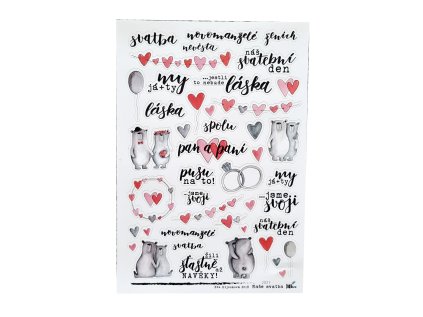 svatba novomanželé ženich
nevěsta
náš
svatební
den
my
já+ty
...jestli
to nebude
láska
láska
spolu
pan a paní
pusu
na to!
my
já+ty
...jsme
svoji
...jsme
svoji
náš
svatební
den
novomanželé
svatba
žili
šťastně
až
NAVĚKY!
Naše svatba